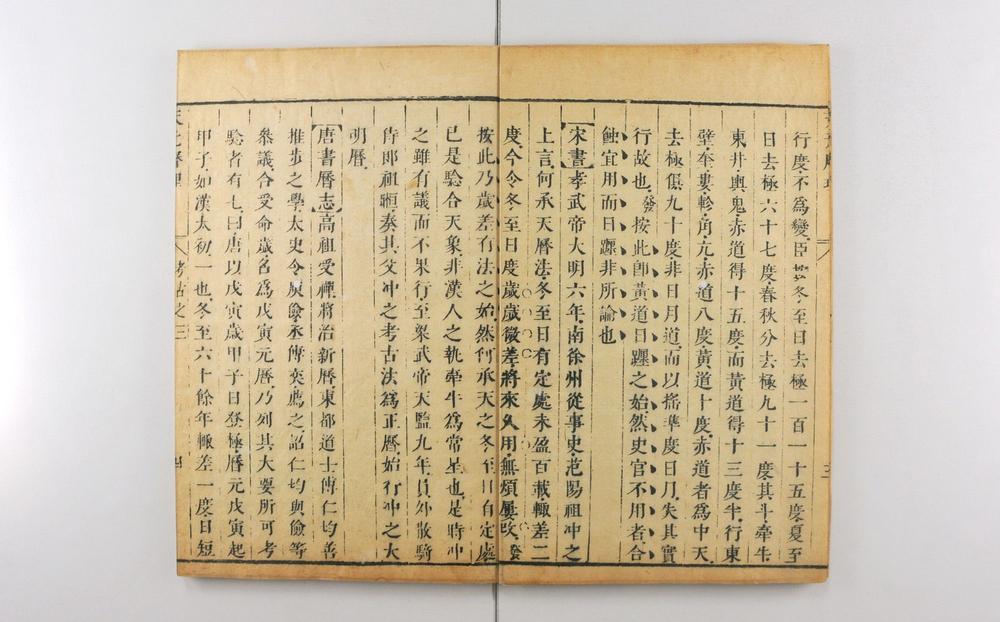 行度不爲變臣
冬至日去極一百一十五度夏至
日去極六十七度春秋分去極九十一度其斗牽牛
東井輿鬼赤道得十五度而黃道得十三度半行東
壁奎婁軫角亢赤道八度黃道十度赤道者爲中天
去極俱九十度非日月道而以搖準度日月失其實
行故也發按此卽黃道日躔之始然史官不用者合
蝕宜用而日躔非所論也
宋書孝武帝大明六年南徐州從事史范陽祖冲之
上言何承天曆法冬至日有定處未盈百載輒差二
度今令冬至日度歲歲微差將來久用無煩屢改發
按此乃歲差有法之始然何承天之冬至日自定處
已是騐合天象非漢人之執牽牛爲常星也是時冲
之雖有議而不果行至梁武帝天監九年員外散騎
侍郎祖暅奏其父冲之考古法爲正曆始行冲之大
明曆
唐書曆志高祖受禪將治新曆東都道士傅仁均善
推步之學太史令庾儉丞傅奕薦之詔仁均與儉等
叅議合受命歲名爲戊寅元曆乃列其大要所可考
騐者有七曰唐以戊寅歲甲子日登極曆元戊寅起
甲子如漢太初一也冬至六十餘年輒差一度日短
考古之三
四